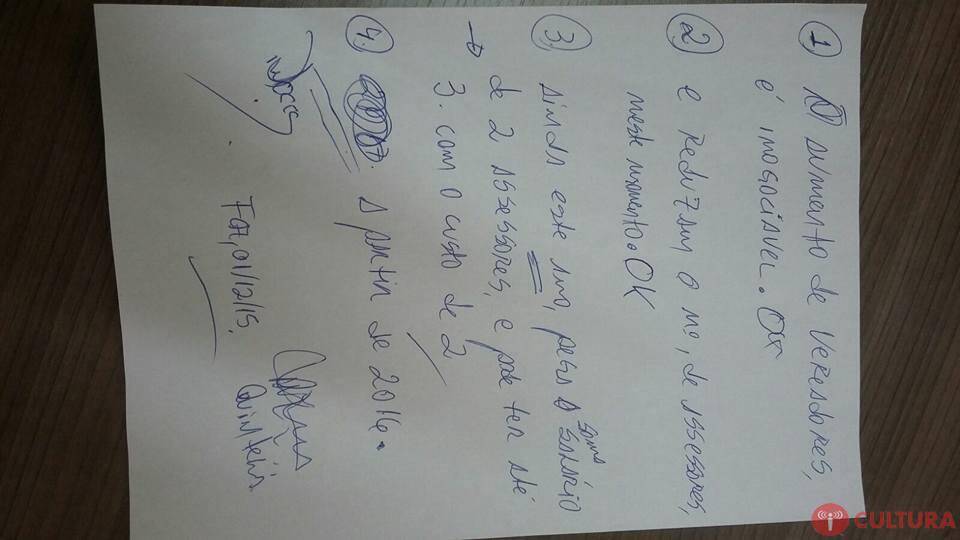 ① AUMENTO DE VEREADORES,
é iNegociável. OK
② e Reduzam o nº, de Assessores,
Neste momento. OK
③ Ainda este ano, pega a soma salário
→ de 2 Assessores, e pode ter até
3. com o custo de 2
④ A partir de 2016.
Foz, 01/12/15.
CULTURA